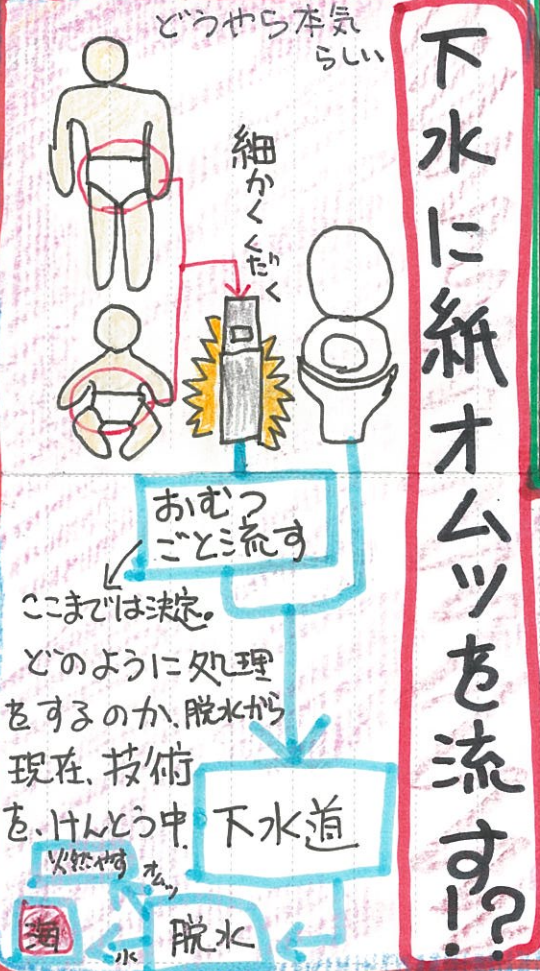 下水に紙オムツを流す!?
どうやら本気
らしい
細かくくだく
おむつ
ごと流す
ここまでは決定。
どのように処理
をするのか、脱水から
現在、技術
を、けんとう中.
下水道
燃やす
オムツ
脱水
水
海